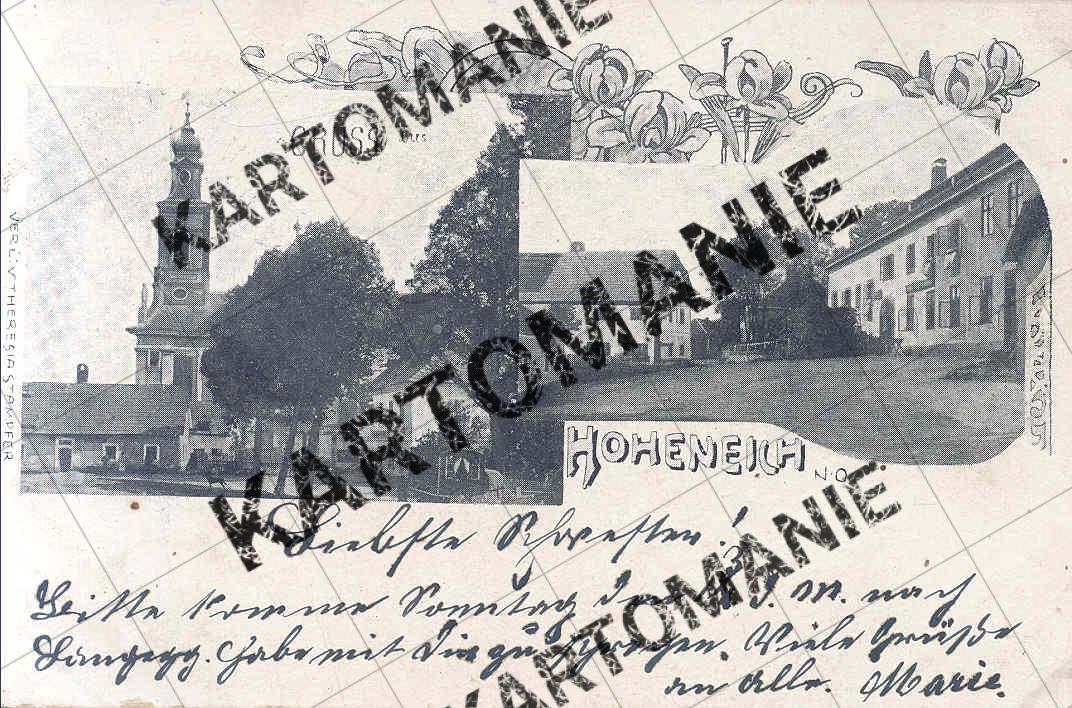 GRUSS aus
VERL. V. THERESIA STAMPFER
HOHENEICH N.Ö.
Liebste Schwester!
Bitte komme Sonntag den d. M. nach
Langegg. Habe mit Dir zu sprechen. Viele Grüße
an Alle. Marie.
KARTOMANIE
KARTOMANIE
KARTOMANIE
KARTOMANIE